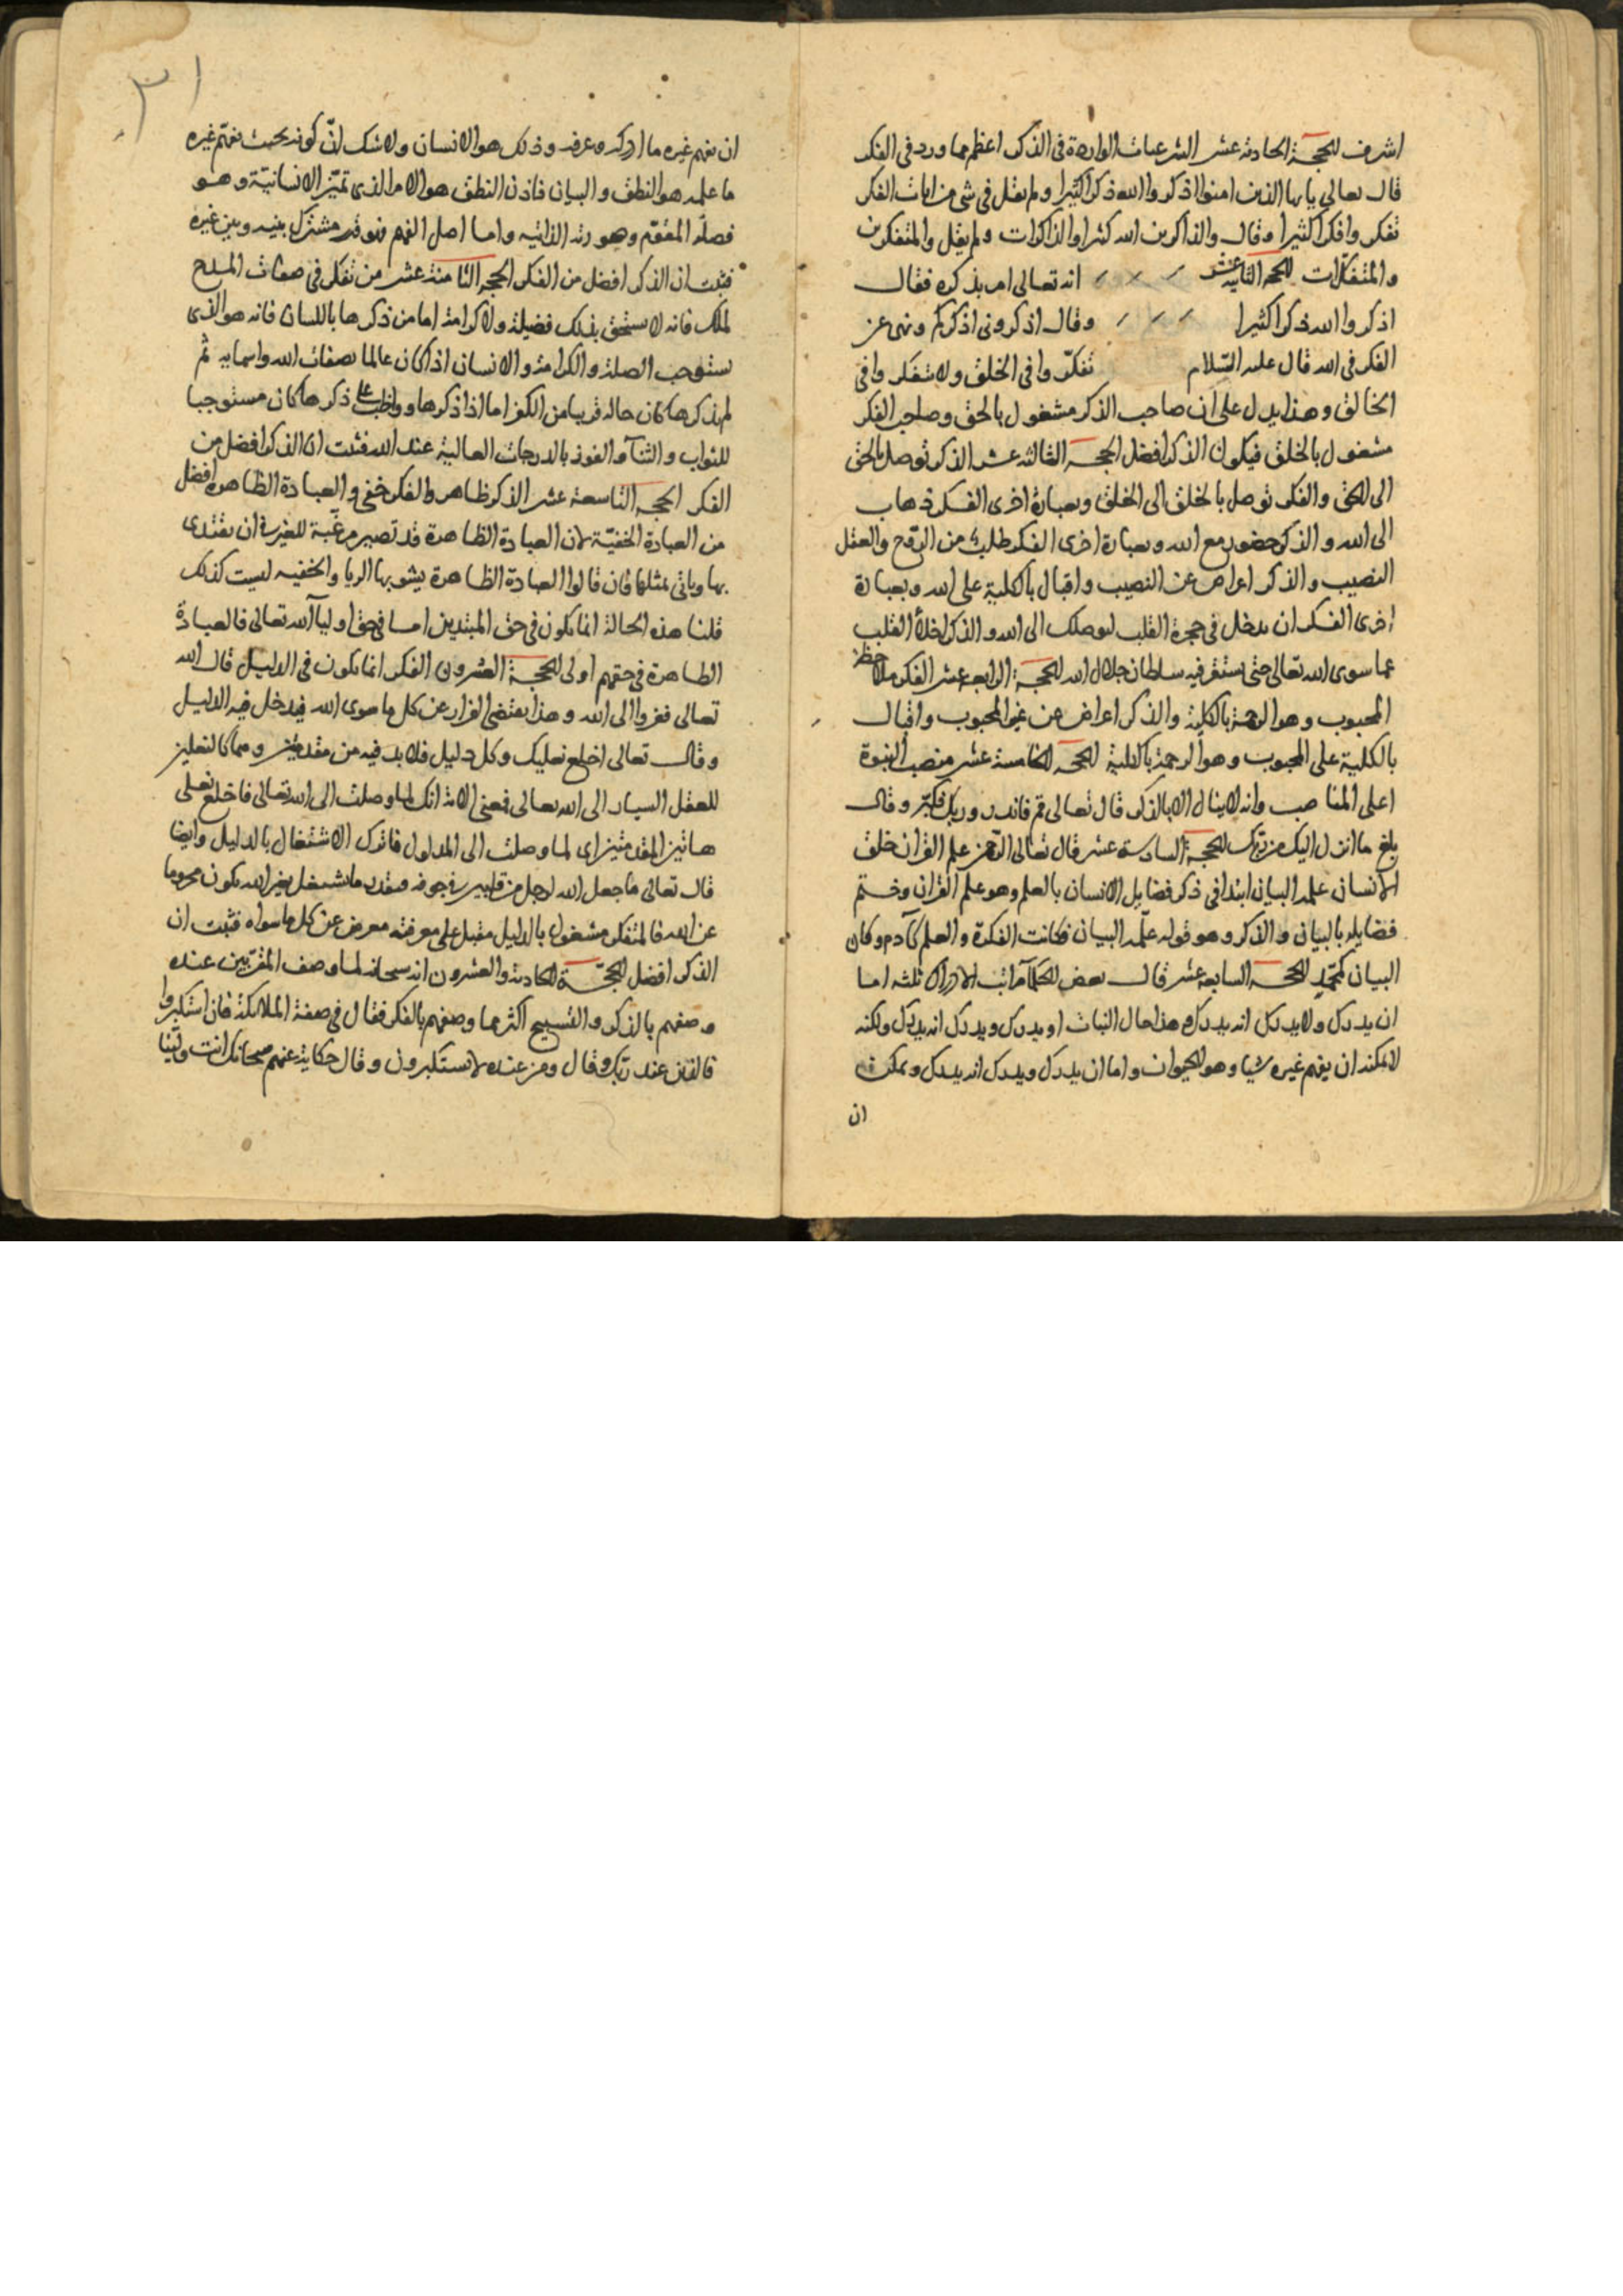 اشرف الحجة الحادية عشر الشرعيات الواردة في الذكر اعظم مما ورد في الفكر
قال تعالى يا يها الذين امنوا اذكروا الله ذكرا كثيرا ولم يقل في شي من ايات الفكر
تفكروا فكرا كثيرا وقال والذاكرين الله كثيرا والذاكرات ولم يقل والمتفكرين
والمتفكرات الحجة الثانية عشر انه تعالى امر بذكره فقال
اذكروا الله ذكرا كثيرا وقال اذكروني اذكركم ونهى عن
الفكر في الله قال عليه السلام تفكروا في الخلق ولا تتفكروا في
الخالق وهذا يدل على ان صاحب الذكر مشغول بالحق وصاحب الفكر
مشغول بالخلق فيكون الذكر افضل الحجة الثالثة عشر الذكر توصل بالحق
الى الحق والفكر توصل بالخلق الى الخلق وبعبارة اخرى الفكر ذهاب
الى الله والذكر حضور مع الله وبعبارة اخرى الفكر طلب من الروح والعقل
النصيب والذكر اعراض عن النصيب واقبال بالكلية على الله وبعبارة
اخرى الفكر ان يدخل في حجرة القلب ليوصلك الى الله والذكر اخلاء القلب
عما سوى الله تعالى حتى يستقر فيه سلطان جلال الله الحجة الرابعة عشر الفكر ملاحظة
المحبوب وهو الرحمة بالكلية والذكر اعراض عن غير المحبوب واقبال
بالكلية على المحبوب وهو الرحمة بالكلية الحجة الخامسة عشر منصب النبوة
اعلى المناصب وانه لا ينال الا بالذكر قال تعالى قم فانذر وربك فكبر وقال
بلغ ما انزل اليك من ربك الحجة السادسة عشر قال تعالى الرحمن علم القران خلق
الانسان علمه البيان ابتدا في ذكر فضايل الانسان بالعلم وهو علم القران وختم
فضايله بالبيان والذكر وهو قوله علمه البيان فكانت الفكرة والعلم كآدم وكان
البيان كمحمد الحجة السابعة عشر قال بعض الحكما مراتب الادراك ثلثه اما
ان يدرك ولا يدرك انه يدرك وهذا حال النبات او يدرك ويدرك انه يدرك ولكنه
لا يمكنه ان يفهم غيره شيا وهو الحيوان واما ان يدرك ويدرك انه يدرك ويمكنه
ان
٣١
ان يفهم غيره ما ادركه وعرفه وذلك هو الانسان ولا شك ان كونه بحيث يفهم غيره
ما علمه هو النطق والبيان فاذن النطق هو الامر الذي تميز الانسانية وهو
فصله المقوم وهو رتبه الذاتيه واما اصل الفهم فهو قدر مشترك بينه وبين غيره
فثبت ان الذكر افضل من الفكر الحجة الثامنة عشر من تفكر في صفات المدح
لملك فانه لا يستحق بذلك فضيلة ولا كرامة اما من ذكرها باللسان فانه هو الذي
يستوجب الصلة والكرامة والانسان اذا كان عالما بصفات الله واسمايه ثم
لم يذكرها كان حاله قريبا من الكفر اما اذا ذكرها وواظب على ذكرها كان مستوجبا
للثواب والثنا والفوز بالدرجات العالية عند الله فثبت ان الذكر افضل من
الفكر الحجة التاسعة عشر الذكر ظاهر والفكر خفي والعبادة الظاهرة افضل
من العبادة الخفية لان العبادة الظاهرة قد تصير مرغبة للغير في ان يقتدى
بها وياتي بمثلها فان قالوا العبادة الظاهرة يشوبها الريا والخفيه ليست كذلك
قلنا هذه الحالة انما يكون في حق المبتدين اما في حق اوليآ الله تعالى فالعبادة
الظاهرة في حقهم اولى الحجة العشرون الفكر انما يكون في الدليل قال الله
تعالى ففروا الى الله وهذا يقتضي الفرار عن كل ما سوى الله فيدخل فيه الدليل
وقال تعالى اخلع نعليك وكل دليل فلا بد فيه من مقدمتين وهما كالنعلين
للعقل السيار الى الله تعالى فمعنى الاية انك لما وصلت الى الله تعالى فاخلع نعلي
هاتين المقدمتين اي لما وصلت الى المدلول فاترك الاشتغال بالدليل وايضا
قال تعالى ما جعل الله لرجل من قلبين في جوفه فبقدر ما يشتغل بغير الله يكون محروما
عن الله فالمتفكر مشغول بالدليل مقبل على معرفته معرض عن كل ما سواه فثبت ان
الذكر افضل الحجة الحادية والعشرون انه سبحانه لما وصف المقربين عنده
وصفهم بالذكر والتسبيح اكثر مما وصفهم بالفكر فقال في صفة الملائكة فان استكبروا
فالذين عند ربك وقال ومن عنده لا يستكبرون وقال حكاية عنهم سبحانك انت ولينا